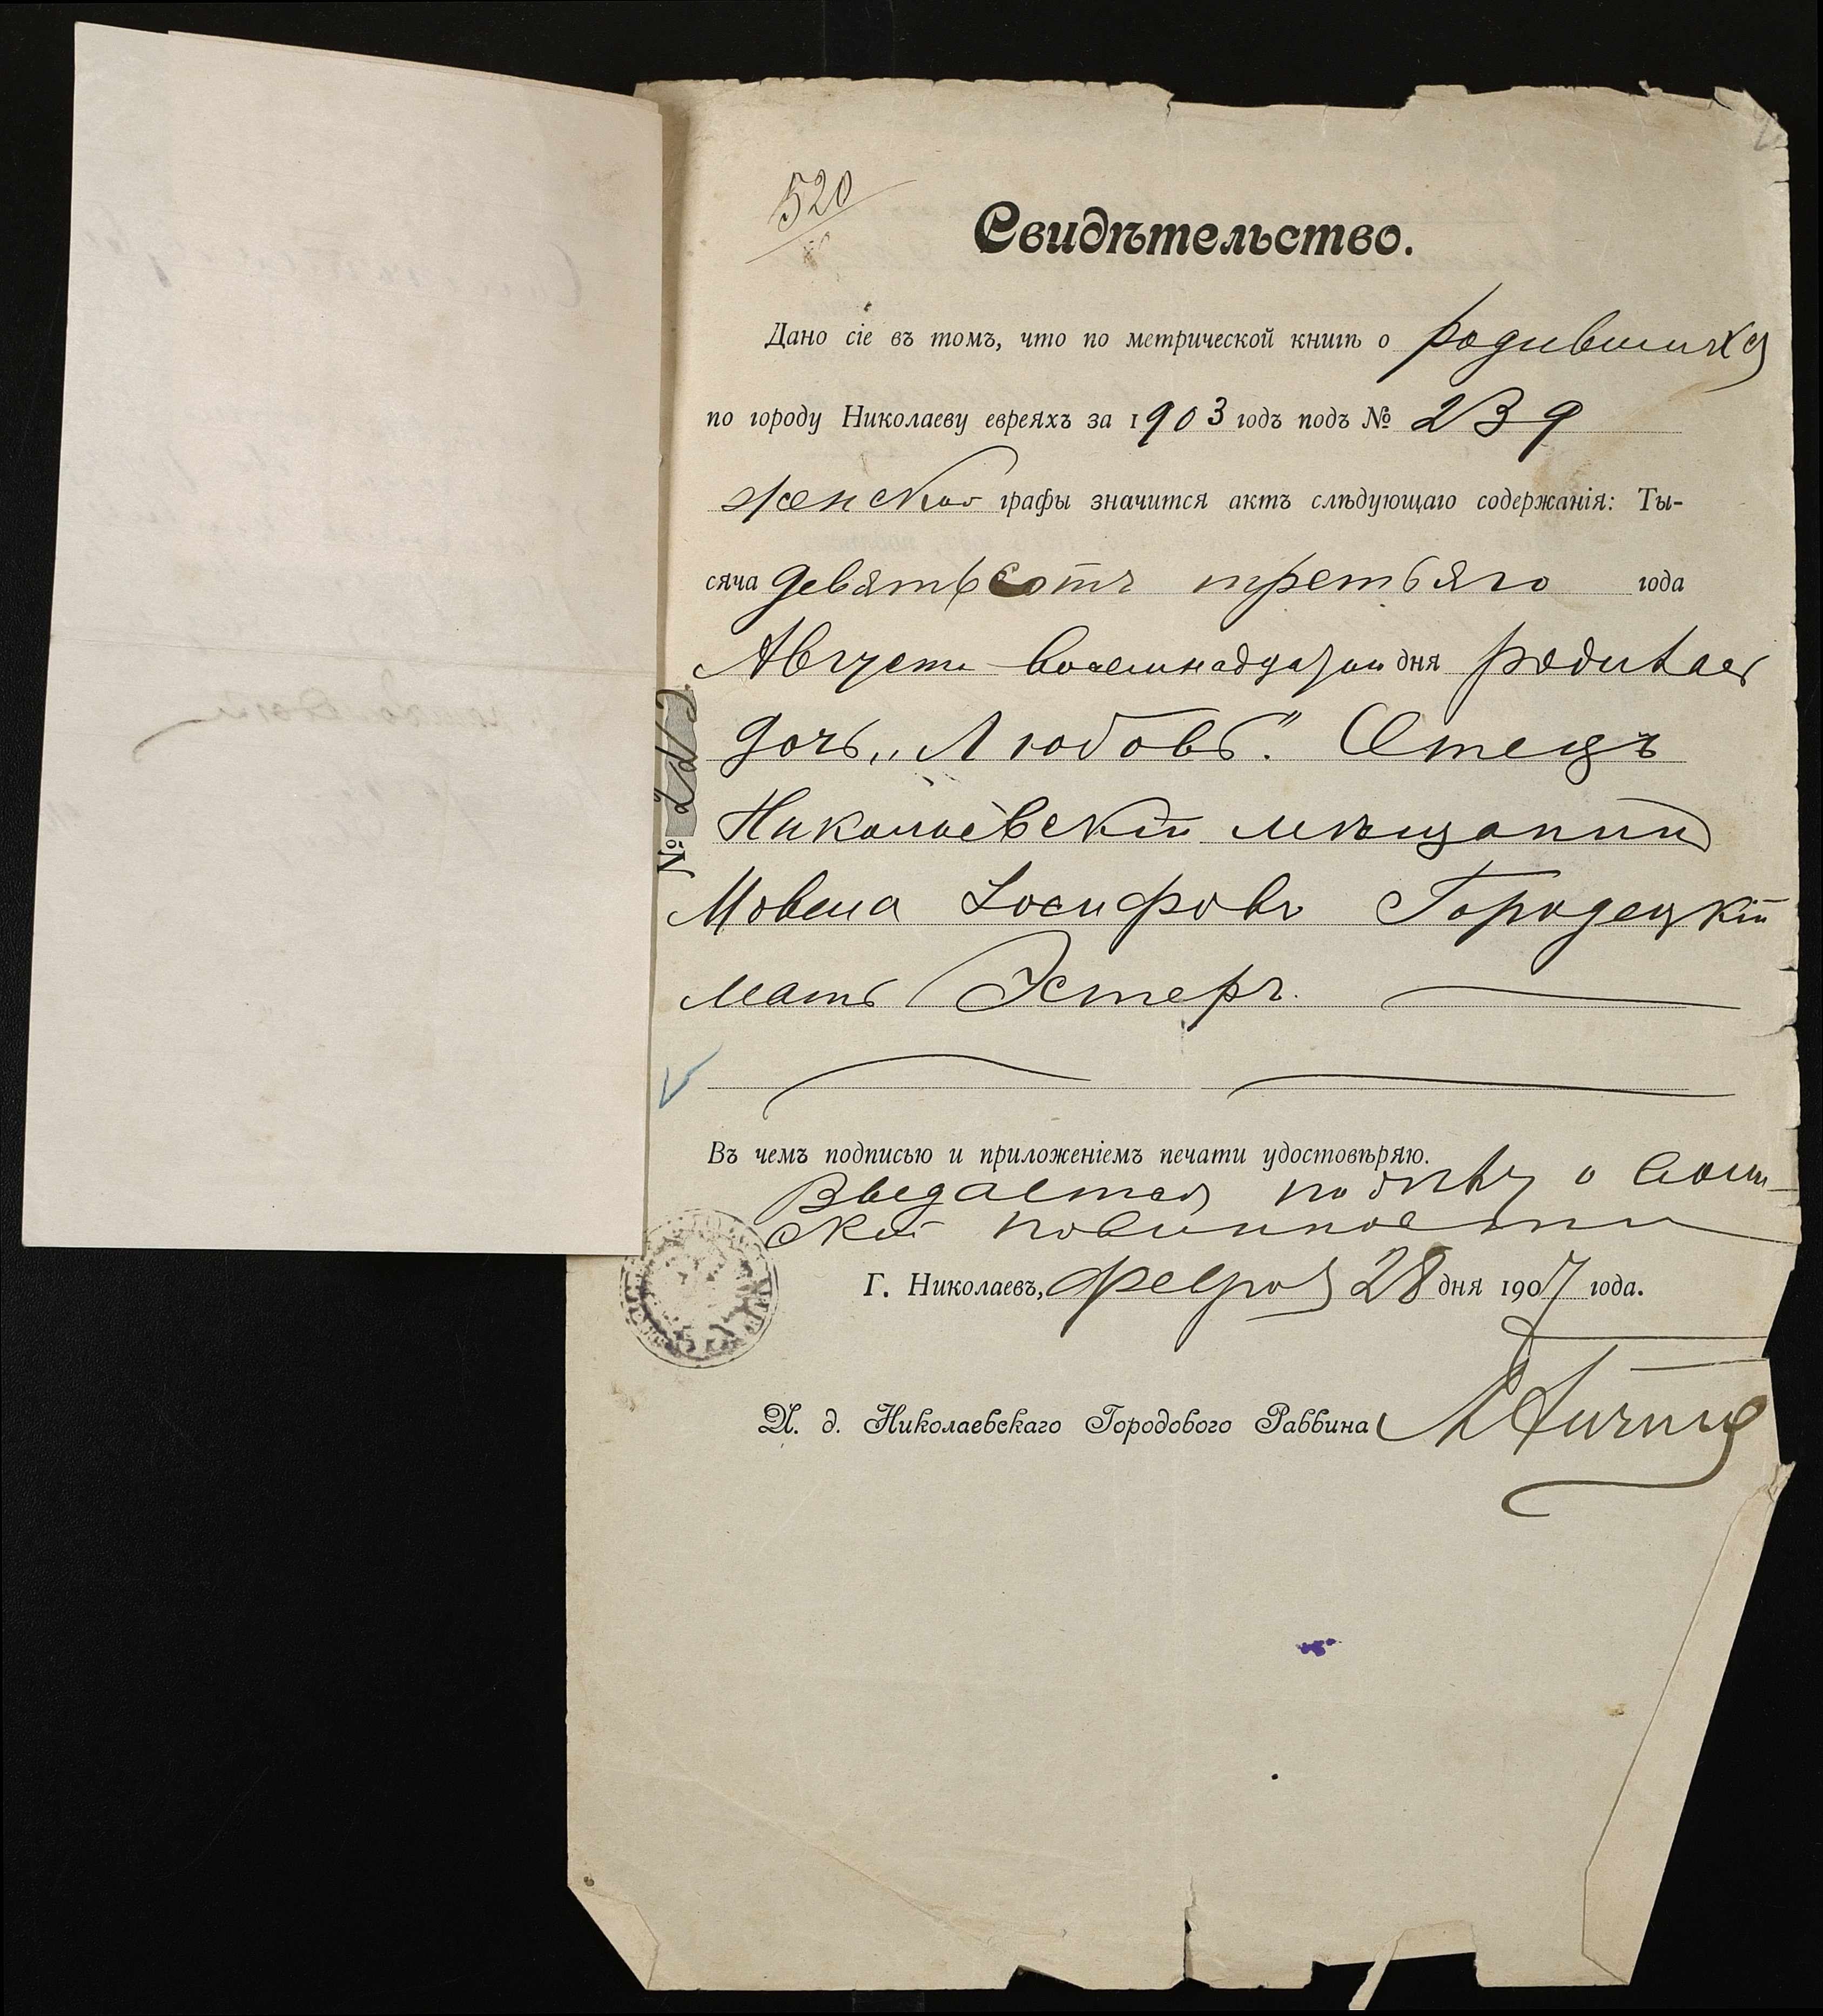 520
Свидѣтельство.
Дано сіе въ томъ, что по метрической книгѣ о родившихся
по городу Николаеву евреяхъ за 1903 годъ подъ № 239
женской графы значится актъ слѣдующаго содержанія: Ты-
сяча девятьсотъ третьяго года
Августа восемнадцатаго дня родилась
дочь „Любовь". Отецъ
Николаевскій мѣщанинъ
Мовша Іосифовъ Городецкій
мать Эстеръ.
№
Въ чемъ подписью и приложеніемъ печати удостовѣряю.
Выдается по дѣлу о воин-
ской повинности
Г. Николаевъ, Февраля 28 дня 1907 года.
И. д. Николаевскаго Городового Раввина